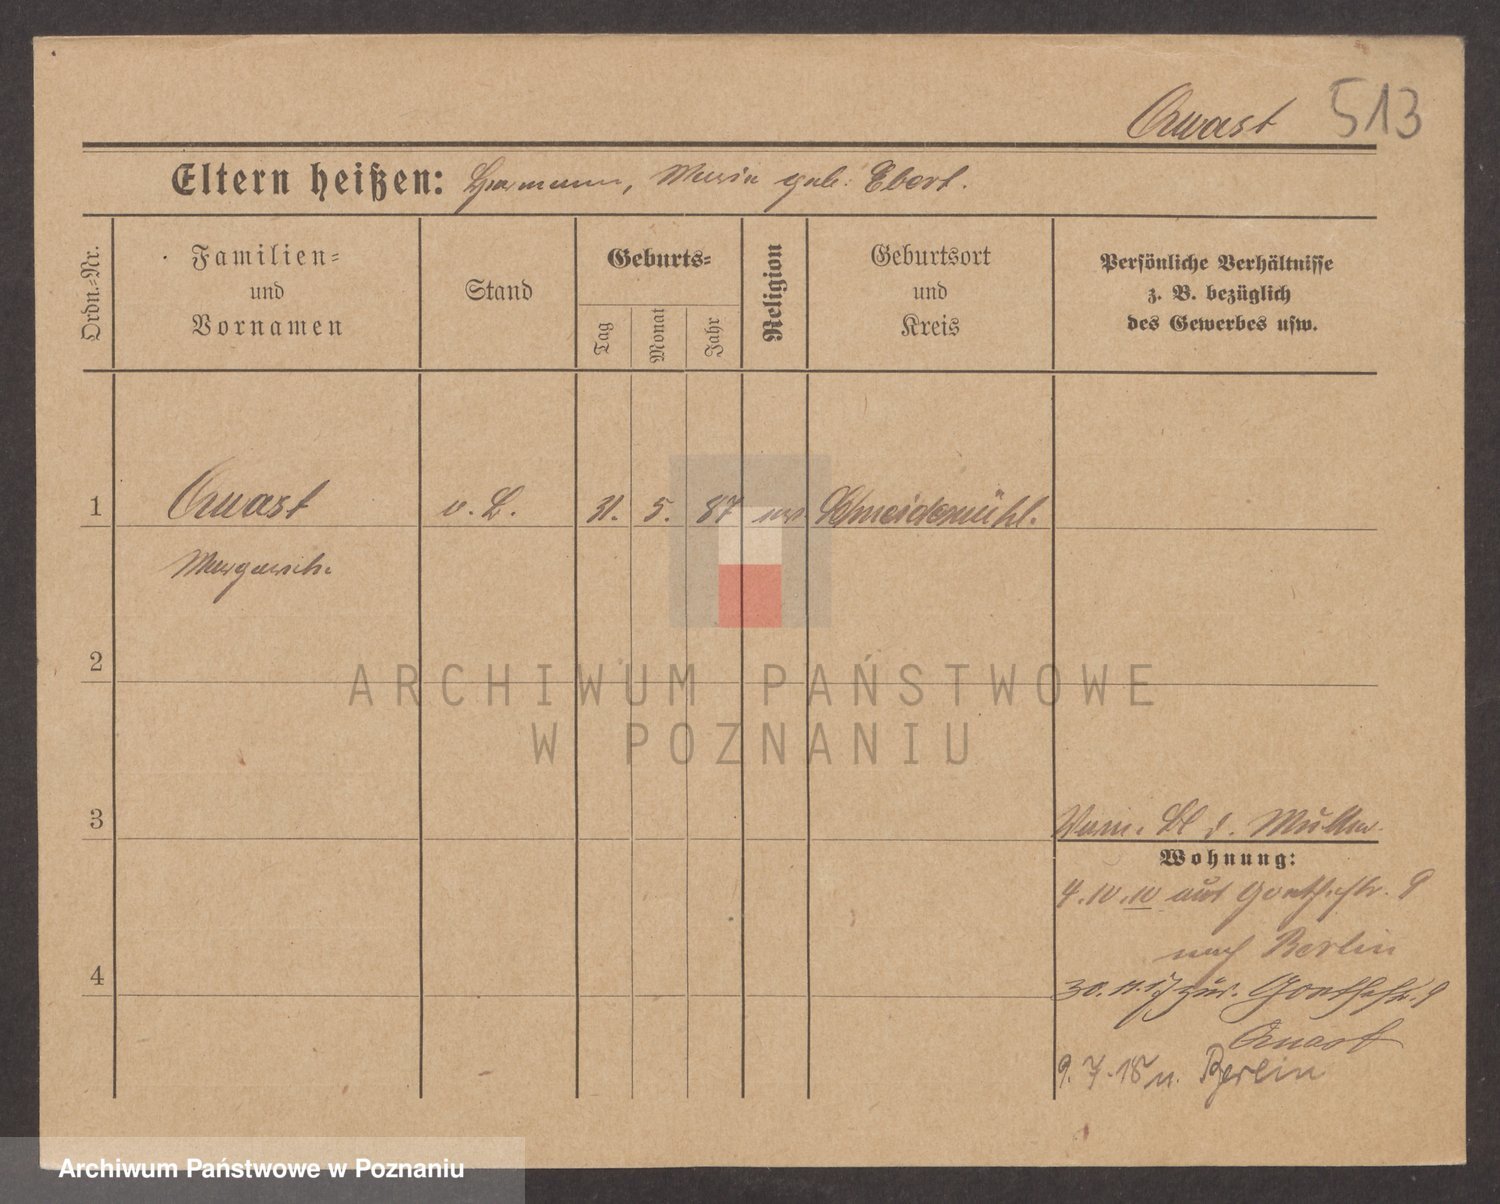 Quast 513
Eltern heißen: Hermann, Maria geb. Ebert.
Ordn.-Nr.
Familien-
und
Vornamen
Stand
Geburts-
Tag
Monat
Jahr
Religion
Geburtsort
und
Kreis
Persönliche Verhältnisse
z. B. bezüglich
des Gewerbes usw.
1 Quast o. B. 31. 5. 87 ev. Schneidemühl.
Margarete
2
3
4
d. Mutter
Wohnung:
4.10.10 aus Goethestr. 9
nach Berlin
30.11.17 zur. Goethestr. 9
Quast
9.7.18 n. Berlin
ARCHIWUM PAŃSTWOWE
W POZNANIU
Archiwum Państwowe w Poznaniu